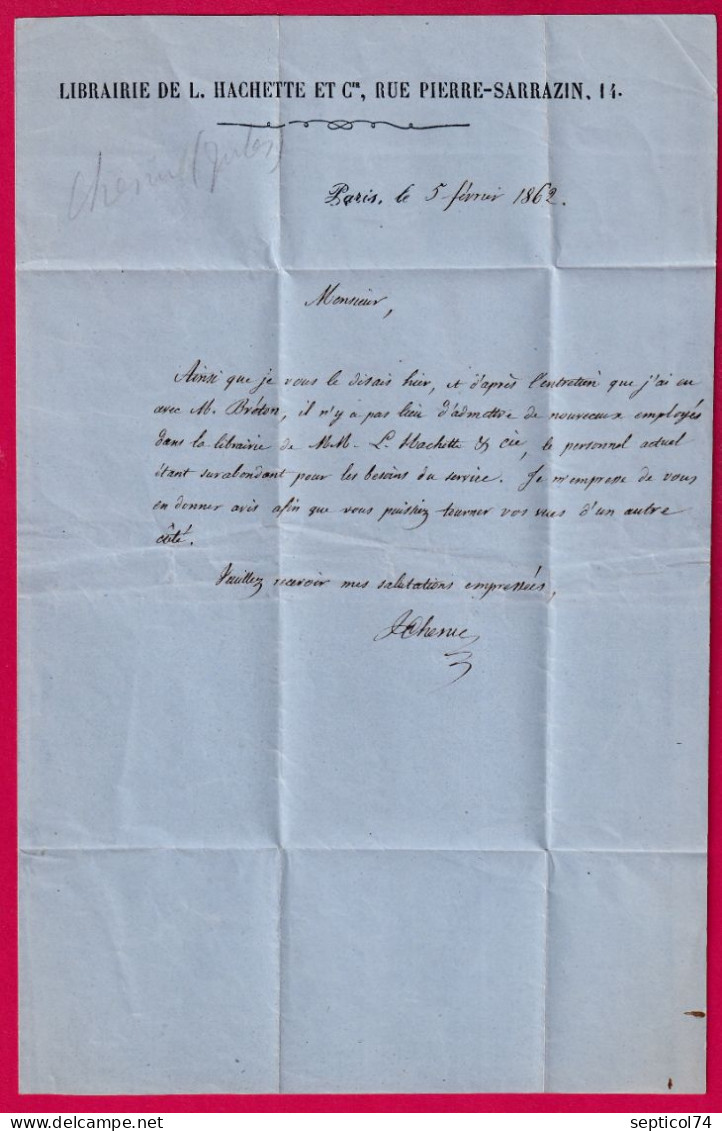 LIBRAIRIE DE L. HACHETTE ET Cie, RUE PIERRE-SARRAZIN, 14.
(Jules)
Paris, le 5 février 1862.
Monsieur,
Ainsi que je vous le disais hier, et d'après l'entretien que j'ai eu
avec M. Bréton, il n'y a pas lieu d'admettre de nouveaux employés
dans la librairie de MM. L. Hachette & Cie, le personnel actuel
étant surabondant pour les besoins du service. Je m'empresse de vous
en donner avis afin que vous puissiez tourner vos vues d'un autre
côté.
Veuillez recevoir mes salutations empressées,
delcampe.net
septicol74